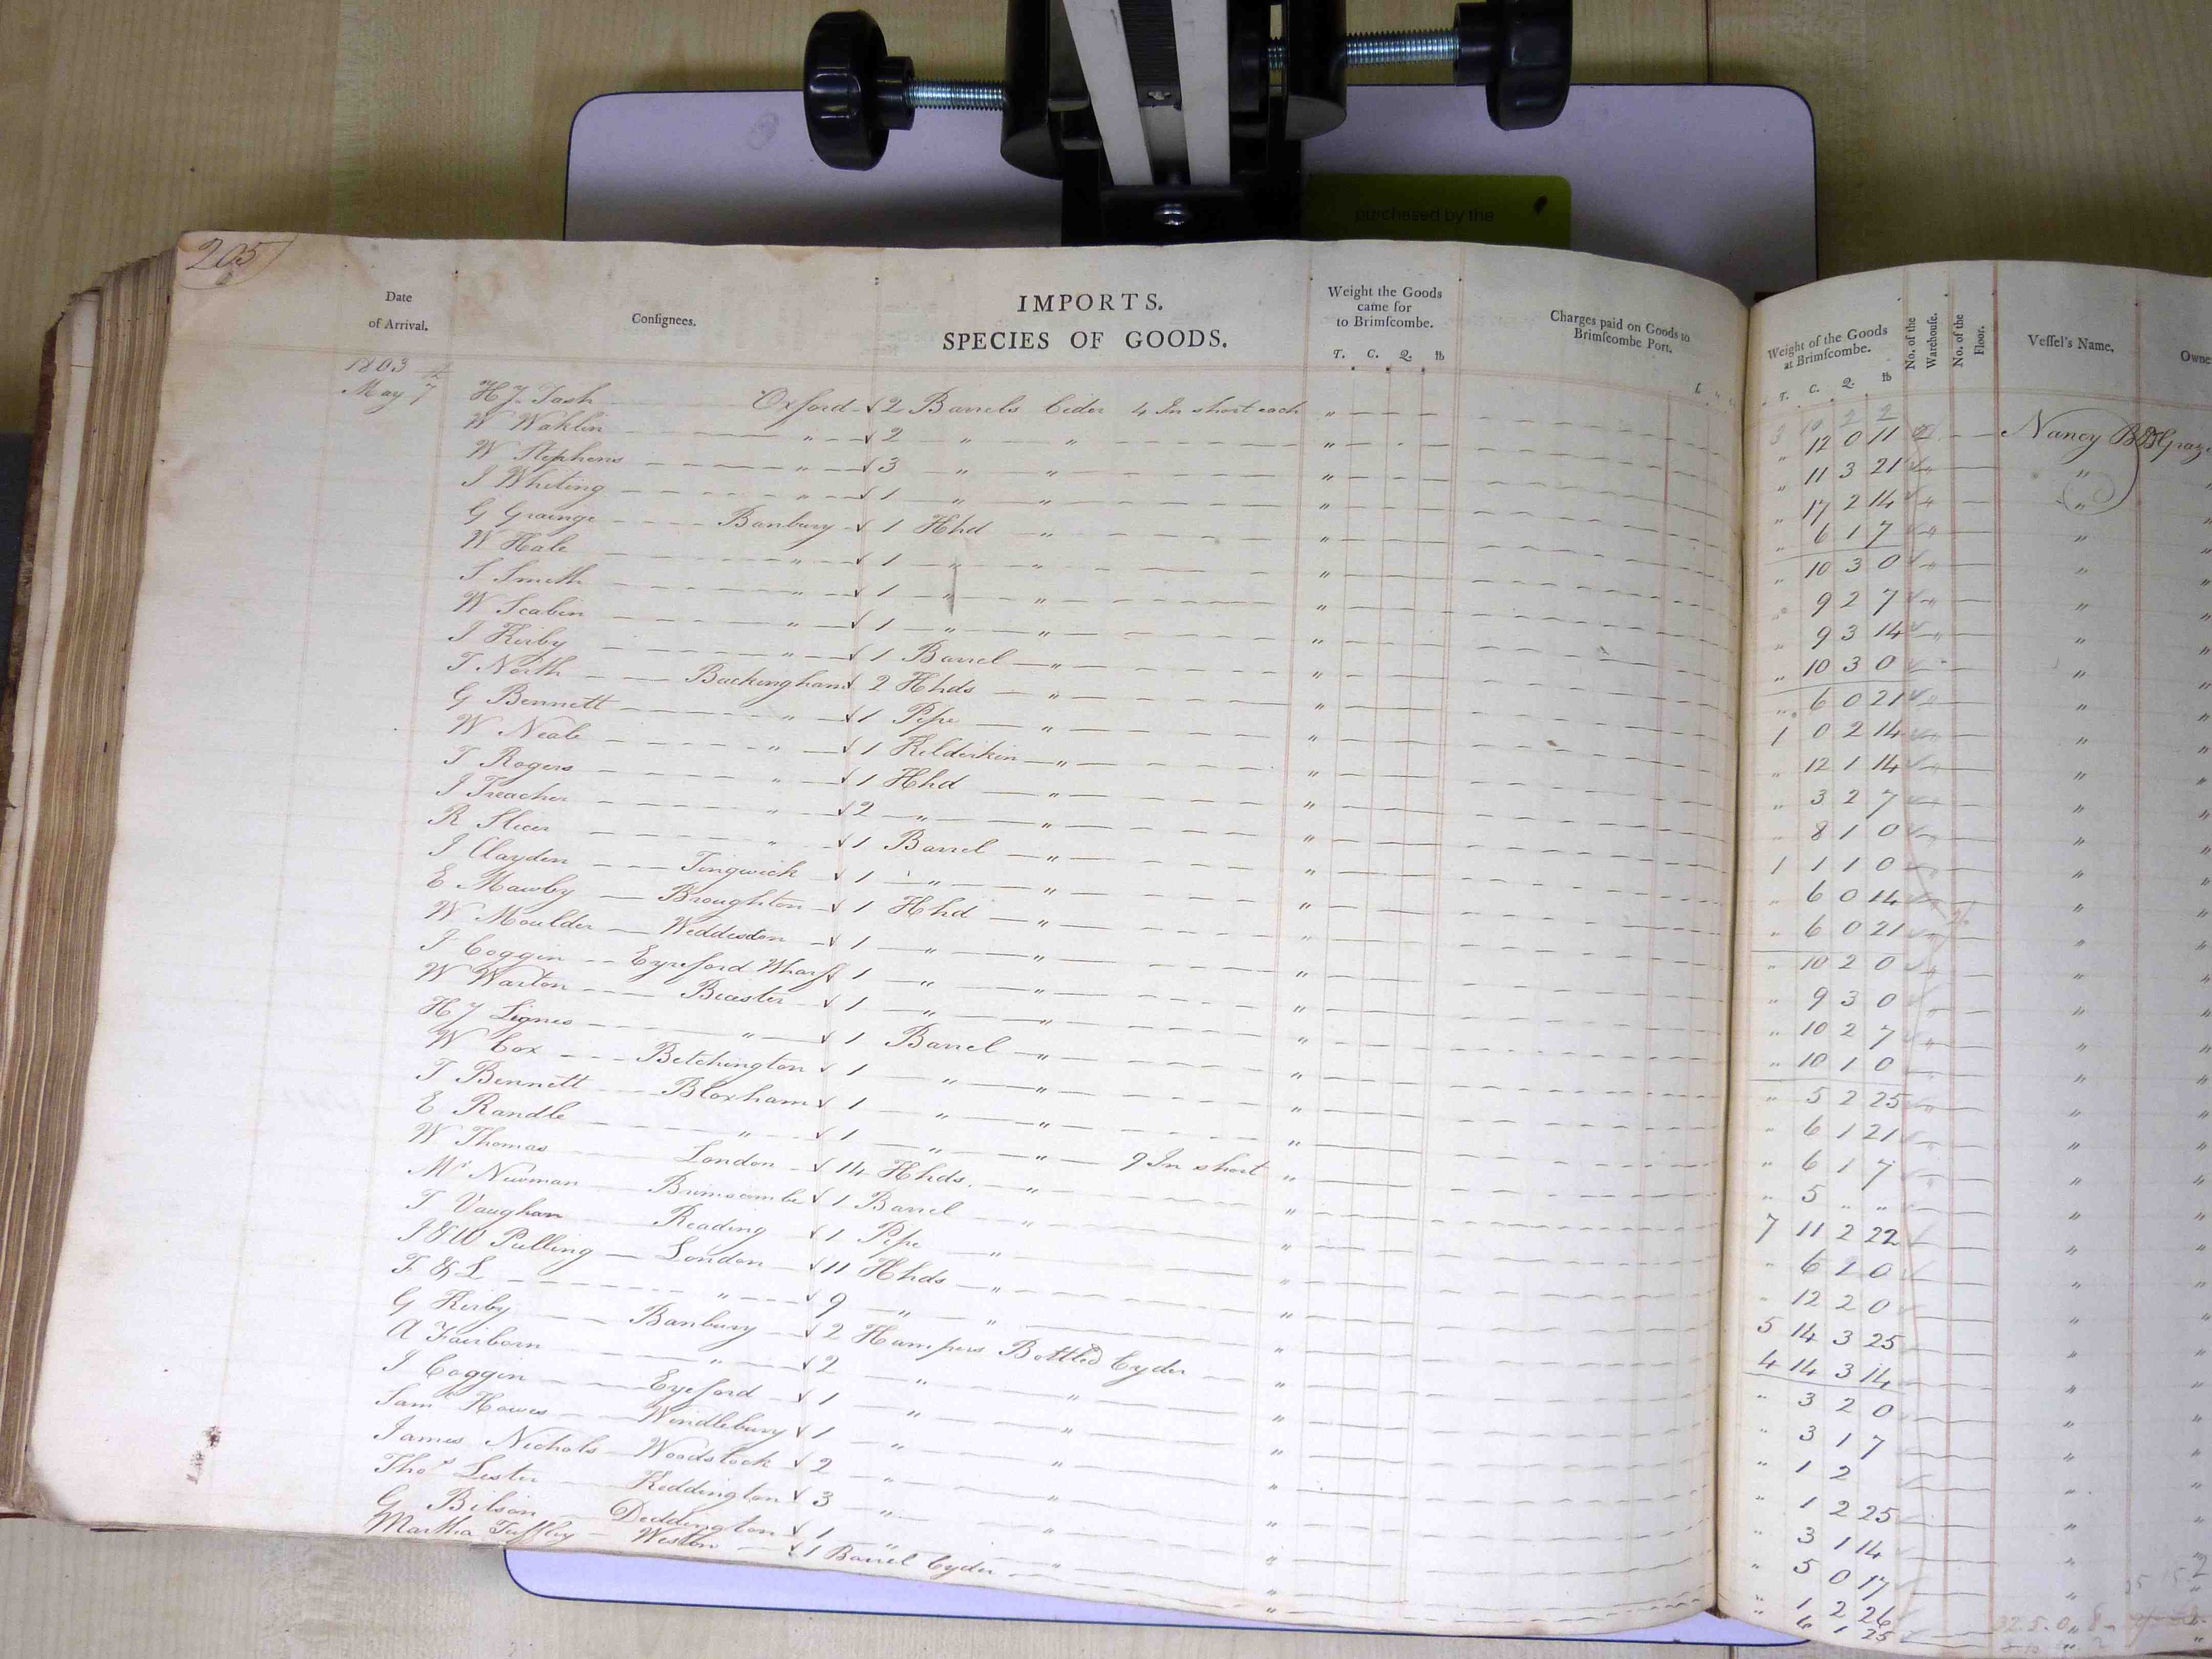 205
purchased by the
Date of Arrival.
Consignees.
IMPORTS.
SPECIES OF GOODS.
Weight the Goods came for to Brimscombe.
T. C. Q. lb
Charges paid on Goods to Brimscombe Port.
1803
May 7 H J Tash Oxford 2 Barrels Cider 4 In short each
W Waklin " 2 " "
W Stephens " 3 " "
J Whiting " 1 " "
G Grainge Banbury 1 Hhd "
W Hale " 1 " "
S Smith " 1 " "
W Scabin " 1 " "
J Kirby " 1 Barrel "
T North Buckingham 2 Hhds "
G Bennett " 1 Pipe "
W Neale " 1 Kilderkin "
T Rogers " 1 Hhd "
J Treacher " 2 " "
R Slicer " 1 Barrel "
J Clayden Tingwick 1 " "
E Mawby Broughton 1 Hhd "
W Moulder Weddesdon 1 " "
J Coggin Eyreford Wharf 1 " "
W Warton Bicester 1 " "
H J Lignes " 1 Barrel "
W Cox Betchington 1 " "
T Bennett Bloxham 1 " "
E Randle " 1 " "
W Thomas London 14 Hhds. " 9 In short
Mr Newman Brimscombe 1 Barrel "
T Vaughan Reading 1 Pipe "
J & W Pulling London 11 Hhds "
T & L " 9 " "
G Kirby Banbury 2 Hampers Bottled Cyder
A Fairborn " 2 " "
J Coggin Eyeford 1 " "
Saml Howes Windlebury 1 " "
James Nichols Woodstock 2 " "
Thos Lester Keddington 3 " "
G Bilson Deddington 1 " "
Martha Tuffley Weston 1 Barrel Cyder
Weight of the Goods at Brimscombe.
T. C. Q. lb
No. of the Warehouse.
No. of the Floor.
Vessel's Name.
Owne
12 0 11 Nancy
" 11 3 21 "
" 17 2 14 "
" 6 1 7 "
" 10 3 0 "
" 9 2 7 "
" 9 3 14 "
" 10 3 0 "
" 6 0 21 "
1 0 2 14 "
" 12 1 14 "
" 3 2 7 "
" 8 1 0 "
1 1 1 0 "
" 6 0 14 "
" 6 0 21 "
" 10 2 0 "
" 9 3 0 "
" 10 2 7 "
" 10 1 0 "
" 5 2 25 "
" 6 1 21 "
" 6 1 7 "
" 5 " " "
7 11 2 22 "
" 6 1 0 "
" 12 2 0 "
5 14 3 25 "
4 14 3 14 "
" 3 2 0 "
" 3 1 7 "
" 1 2 "
" 1 2 25 "
" 3 1 14 "
" 5 0 17 "
" 1 2 26 "
" 6 1 25 "